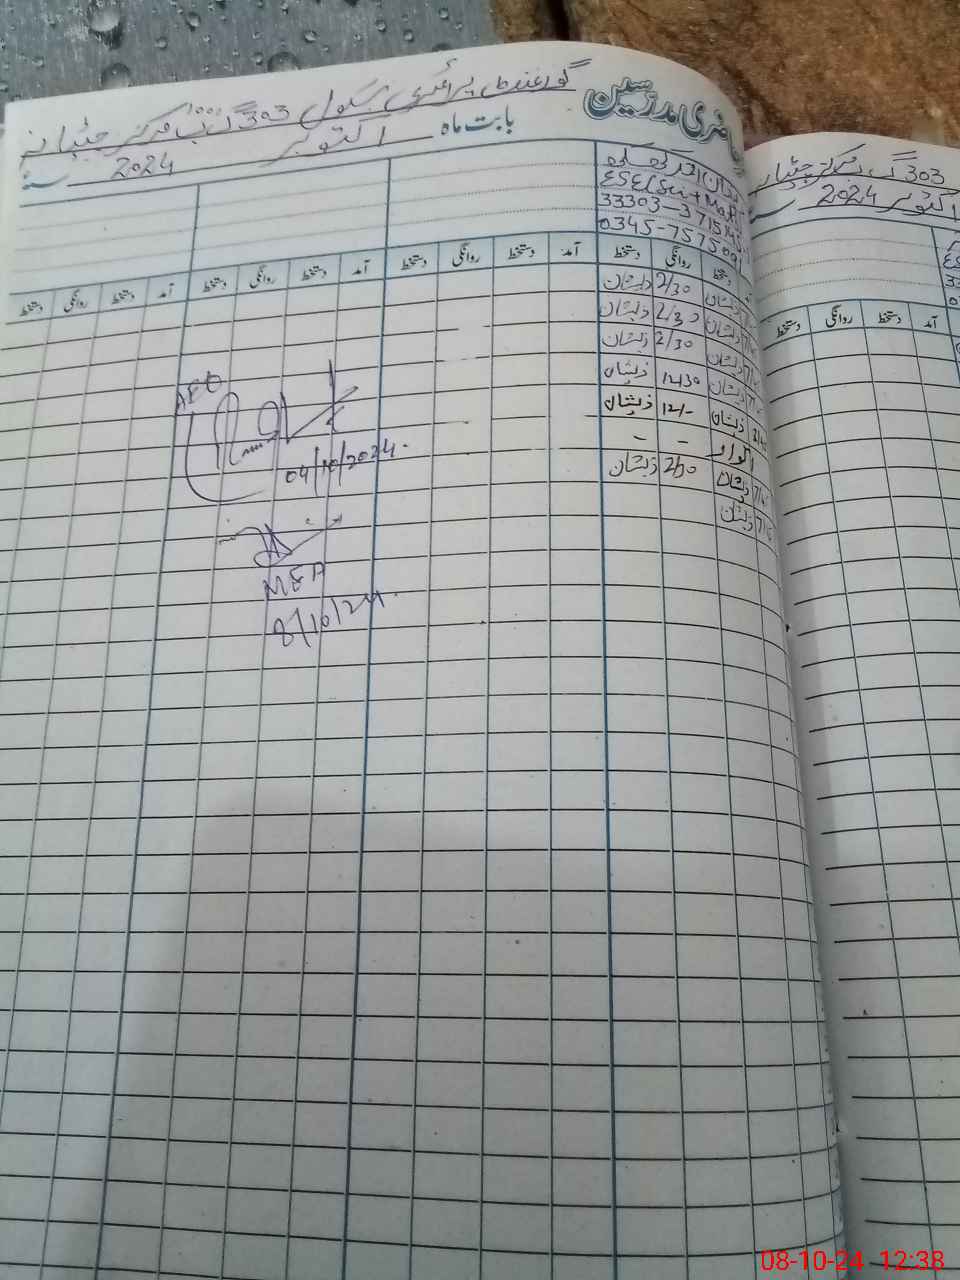 حاضری مدرسین گورنمنٹ پرائمری سکول 303 گ ب مرکز چٹیانہ
بابت ماہ اکتوبر سنہ 2024
ذیشان
ESE (Sci+Math
33303-3715
0345-7575
آمد دستخط روانگی دستخط آمد دستخط روانگی دستخط آمد دستخط روانگی دستخط آمد دستخط روانگی دستخط
ذیشان 2/30 ذیشان
ذیشان 2/30 ذیشان
ذیشان 2/30 ذیشان
ذیشان 12/30 ذیشان
ذیشان 12/- ذیشان
اتوار - -
ذیشان 2/30 ذیشان
ذیشان
AEO
04/10/2024
MEA
8/10/24
303 گ ب مرکز چٹیانہ
اکتوبر سنہ 2024
آمد دستخط روانگی دستخط
08-10-24 12:38